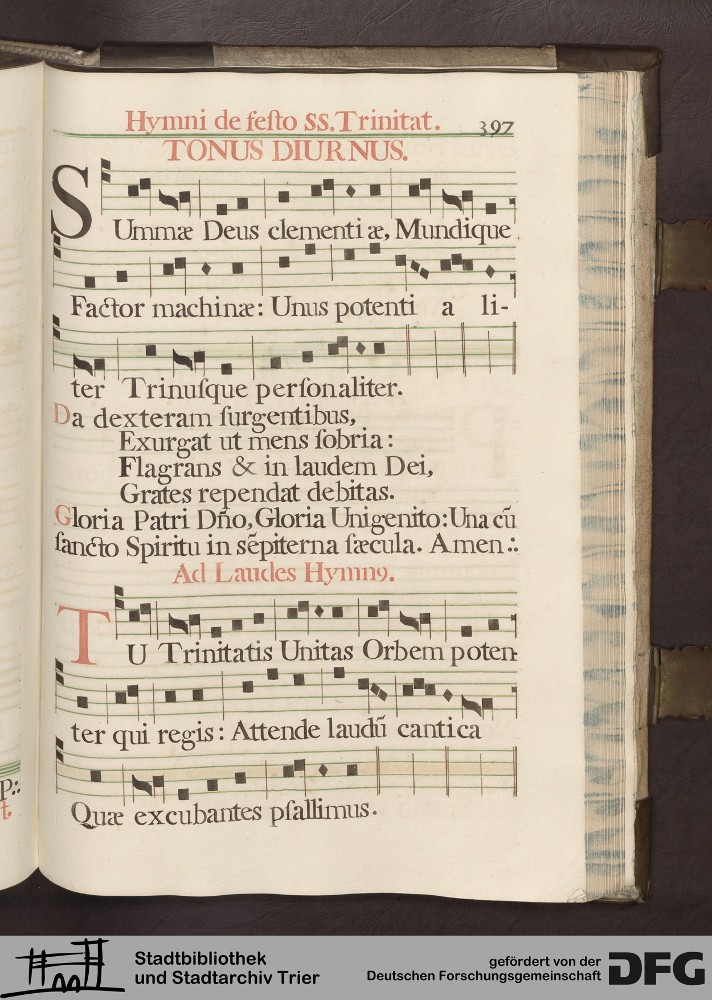 Hymni de festo SS. Trinitat. 397
TONUS DIURNUS.
SUmmæ Deus clementi æ, Mundique
Factor machinæ: Unus potenti a li-
ter Trinuſque perſonaliter.
Da dexteram ſurgentibus,
Exurgat ut mens ſobria:
Flagrans & in laudem Dei,
Grates rependat debitas.
Gloria Patri Dño, Gloria Unigenito: Una cū
ſancto Spiritu in sēpiterna ſæcula. Amen :.
Ad Laudes Hymnꝰ.
TU Trinitatis Unitas Orbem poten-
ter qui regis: Attende laudū cantica
Quæ excubantes pſallimus.
p:.
t.
Stadtbibliothek
und Stadtarchiv Trier
gefördert von der
Deutschen Forschungsgemeinschaft
DFG